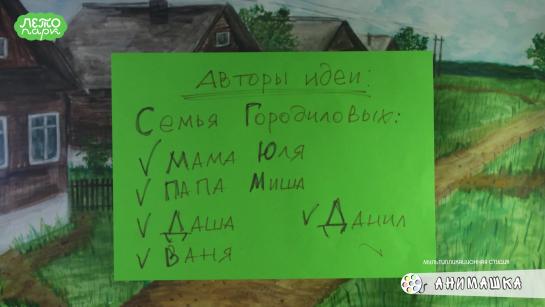 ЛЕТО
ПАРК
Авторы идеи:
Семья Городиловых:
✓ Мама Юля
✓ Папа Миша
✓ Даша ✓ Данил
✓ Ваня
МУЛЬТИПЛИКАЦИОННАЯ СТУДИЯ
АНИМАШКА